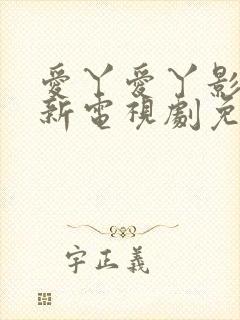 愛丫愛丫影
新電視劇免
字正義